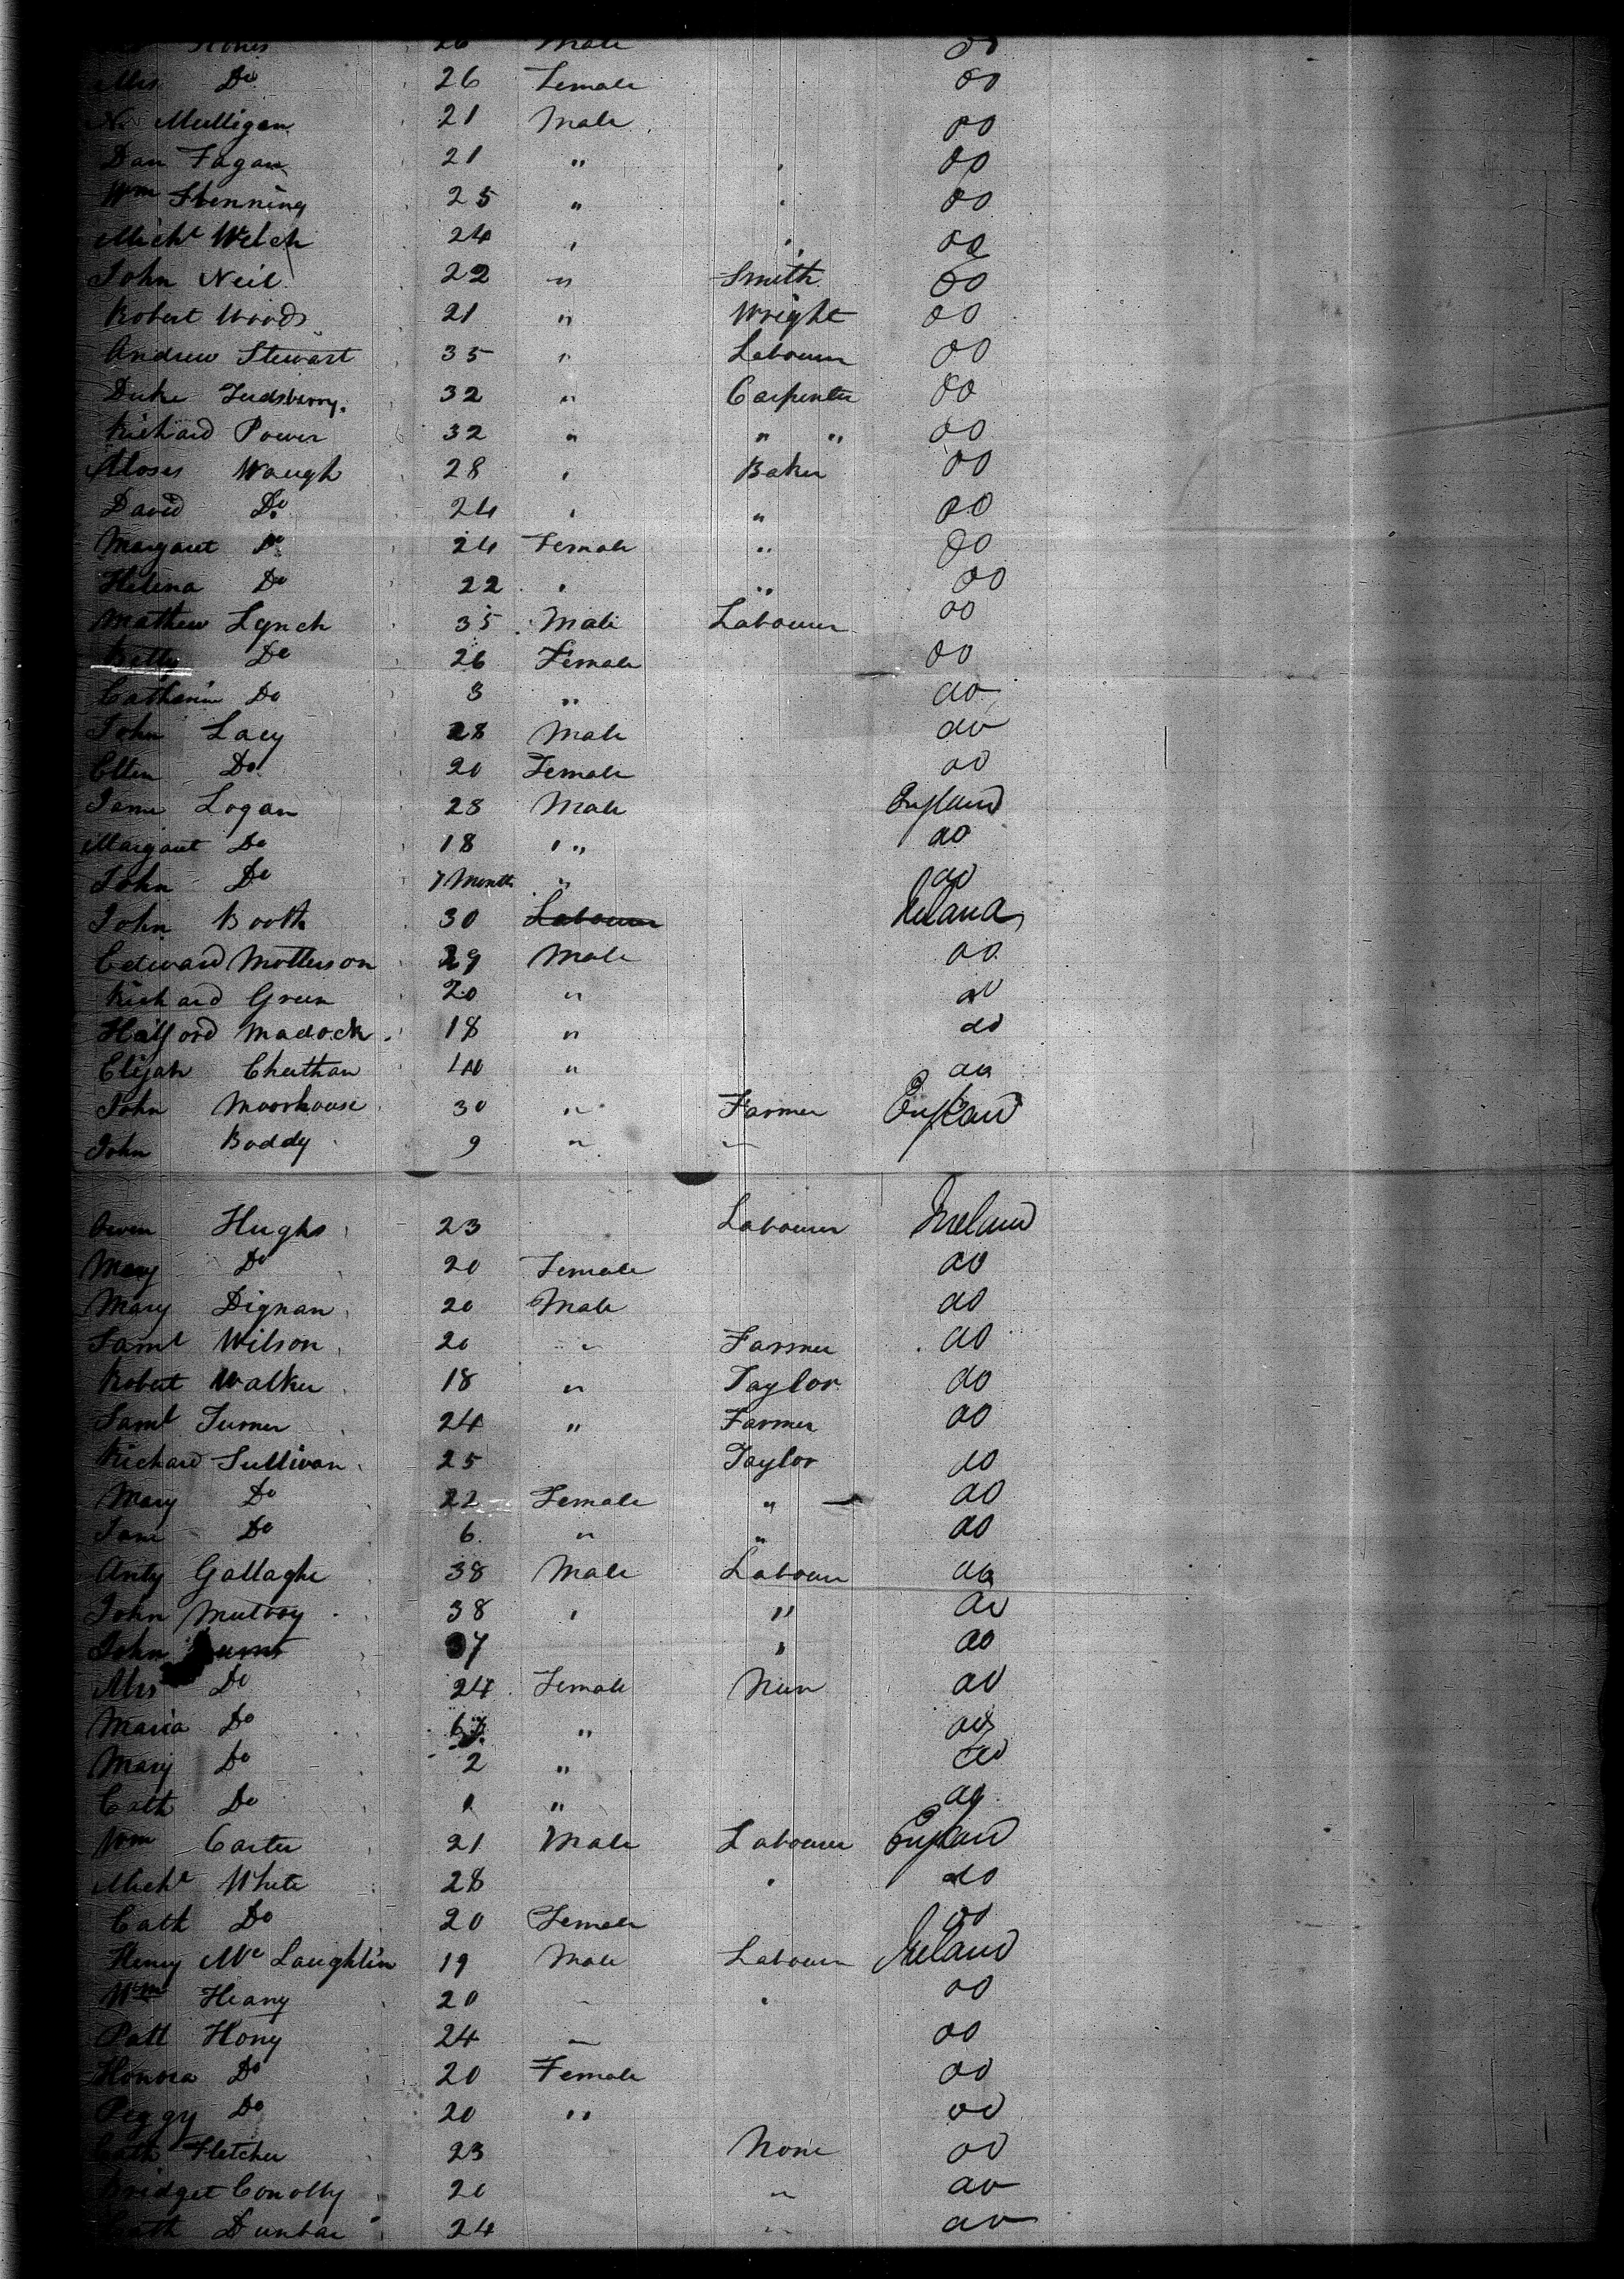 26 Male do
Mrs Do 26 Female do
N. Mulligan 21 Male do
Dan Fagan 21 " do
Wm Stenning 25 " " do
Michl Welch 24 " " do
John Neil 22 " Smith do
Robert Woods 21 " Wright do
Andrew Stewart 35 " Labourer do
Duke 32 " Carpenter do
Richard Power 32 " " " do
Moses Waugh 28 " Baker do
David Do 24 " " do
Margaret Do 24 Female " do
Helena Do 22 " " do
Mathew Lynch 35 Male Labourer do
Betty Do 26 Female do
Catherin Do 3 " do
John Lacy 28 Male do
Ellen Do 20 Female do
Logan 28 Male England
Margaret Do 18 " " do
John Do 7 Months " do
John Booth 30 Labourer Ireland
Edward Motterson 29 Male do
Richard Green 20 " do
Halford Madock 18 " do
Elijah Cheethan " do
John Moorhouse 30 " Farmer England
John Boddy 9 " "
Owen Hughs 23 Labourer Ireland
Mary Do 20 Female do
Mary Dignan 20 Male do
Saml Wilson 20 " Farmer do
Robert Walker 18 " Taylor do
Saml Turner 24 " Farmer do
Richard Sullivan 25 Taylor do
Mary Do 22 Female " do
Jane Do 6 " " do
Anty Gallaghe 38 Male Labour do
John Mulvoy 38 " " do
John " do
Mrs Do 24 Female do
Maria Do " do
Mary Do 2 " do
Cath Do " do
Wm Carter 21 Male Labourer England
Michl White 28 " do
Cath Do 20 Female do
Henry McLaughlin 19 Male Labourer Ireland
Wm Heany 20 " " do
Patt Hony 24 " do
Honora Do 20 Female do
Peggy Do 20 " do
Cath Fletcher 23 None do
Bridget Conolly 20 " do
Cath Dunbar 24 " do